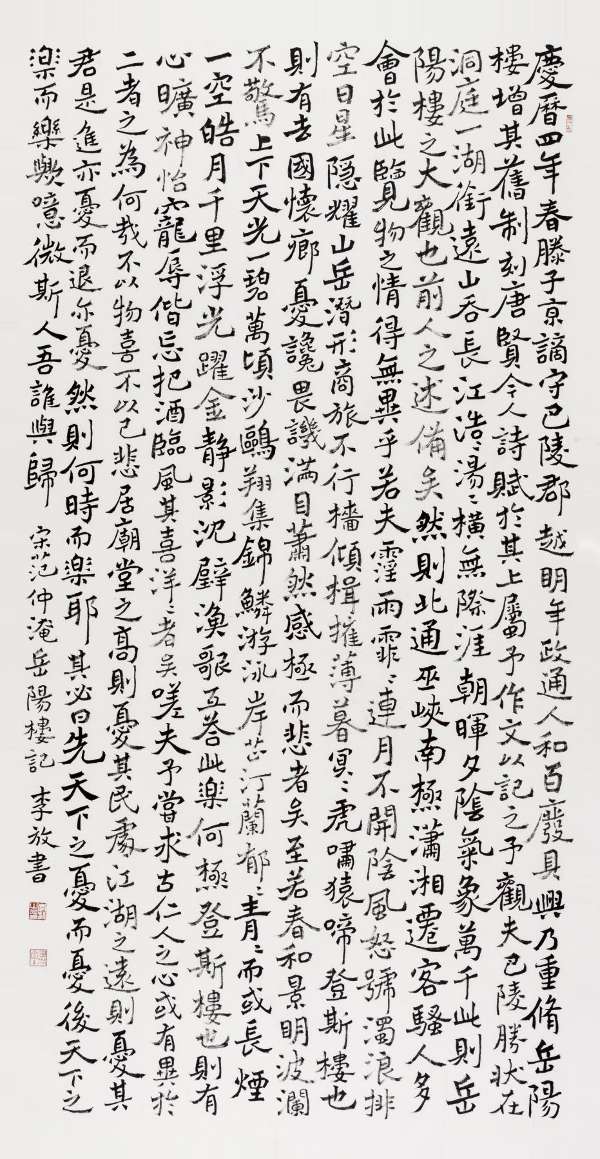 慶曆四年春滕子京謫守巴陵郡越明年政通人和百廢具興乃重脩岳陽
樓增其舊制刻唐賢今人詩賦於其上屬予作文以記之予觀夫巴陵勝狀在
洞庭一湖銜遠山吞長江浩〻湯〻橫無際涯朝暉夕陰氣象萬千此則岳
陽樓之大觀也前人之述備矣然則北通巫峽南極瀟湘遷客騷人多
會於此覽物之情得無異乎若夫霪雨霏〻連月不開陰風怒號濁浪排
空日星隱耀山岳潛形商旅不行檣傾楫摧薄暮冥〻虎嘯猿啼登斯樓也
則有去國懷鄉憂讒畏譏滿目蕭然感極而悲者矣至若春和景明波瀾
不驚上下天光一碧萬頃沙鷗翔集錦鱗游泳岸芷汀蘭郁〻青〻而或長煙
一空皓月千里浮光躍金靜影沈璧漁歌互答此樂何極登斯樓也則有
心曠神怡寵辱偕忘把酒臨風其喜洋〻者矣嗟夫予嘗求古仁人之心或有異於
二者之為何哉不以物喜不以己悲居廟堂之高則憂其民處江湖之遠則憂其
君是進亦憂而退亦憂然則何時而樂耶其必曰先天下之憂而憂後天下之
樂而樂歟噫微斯人吾誰與歸 宋范仲淹岳陽樓記 李放書